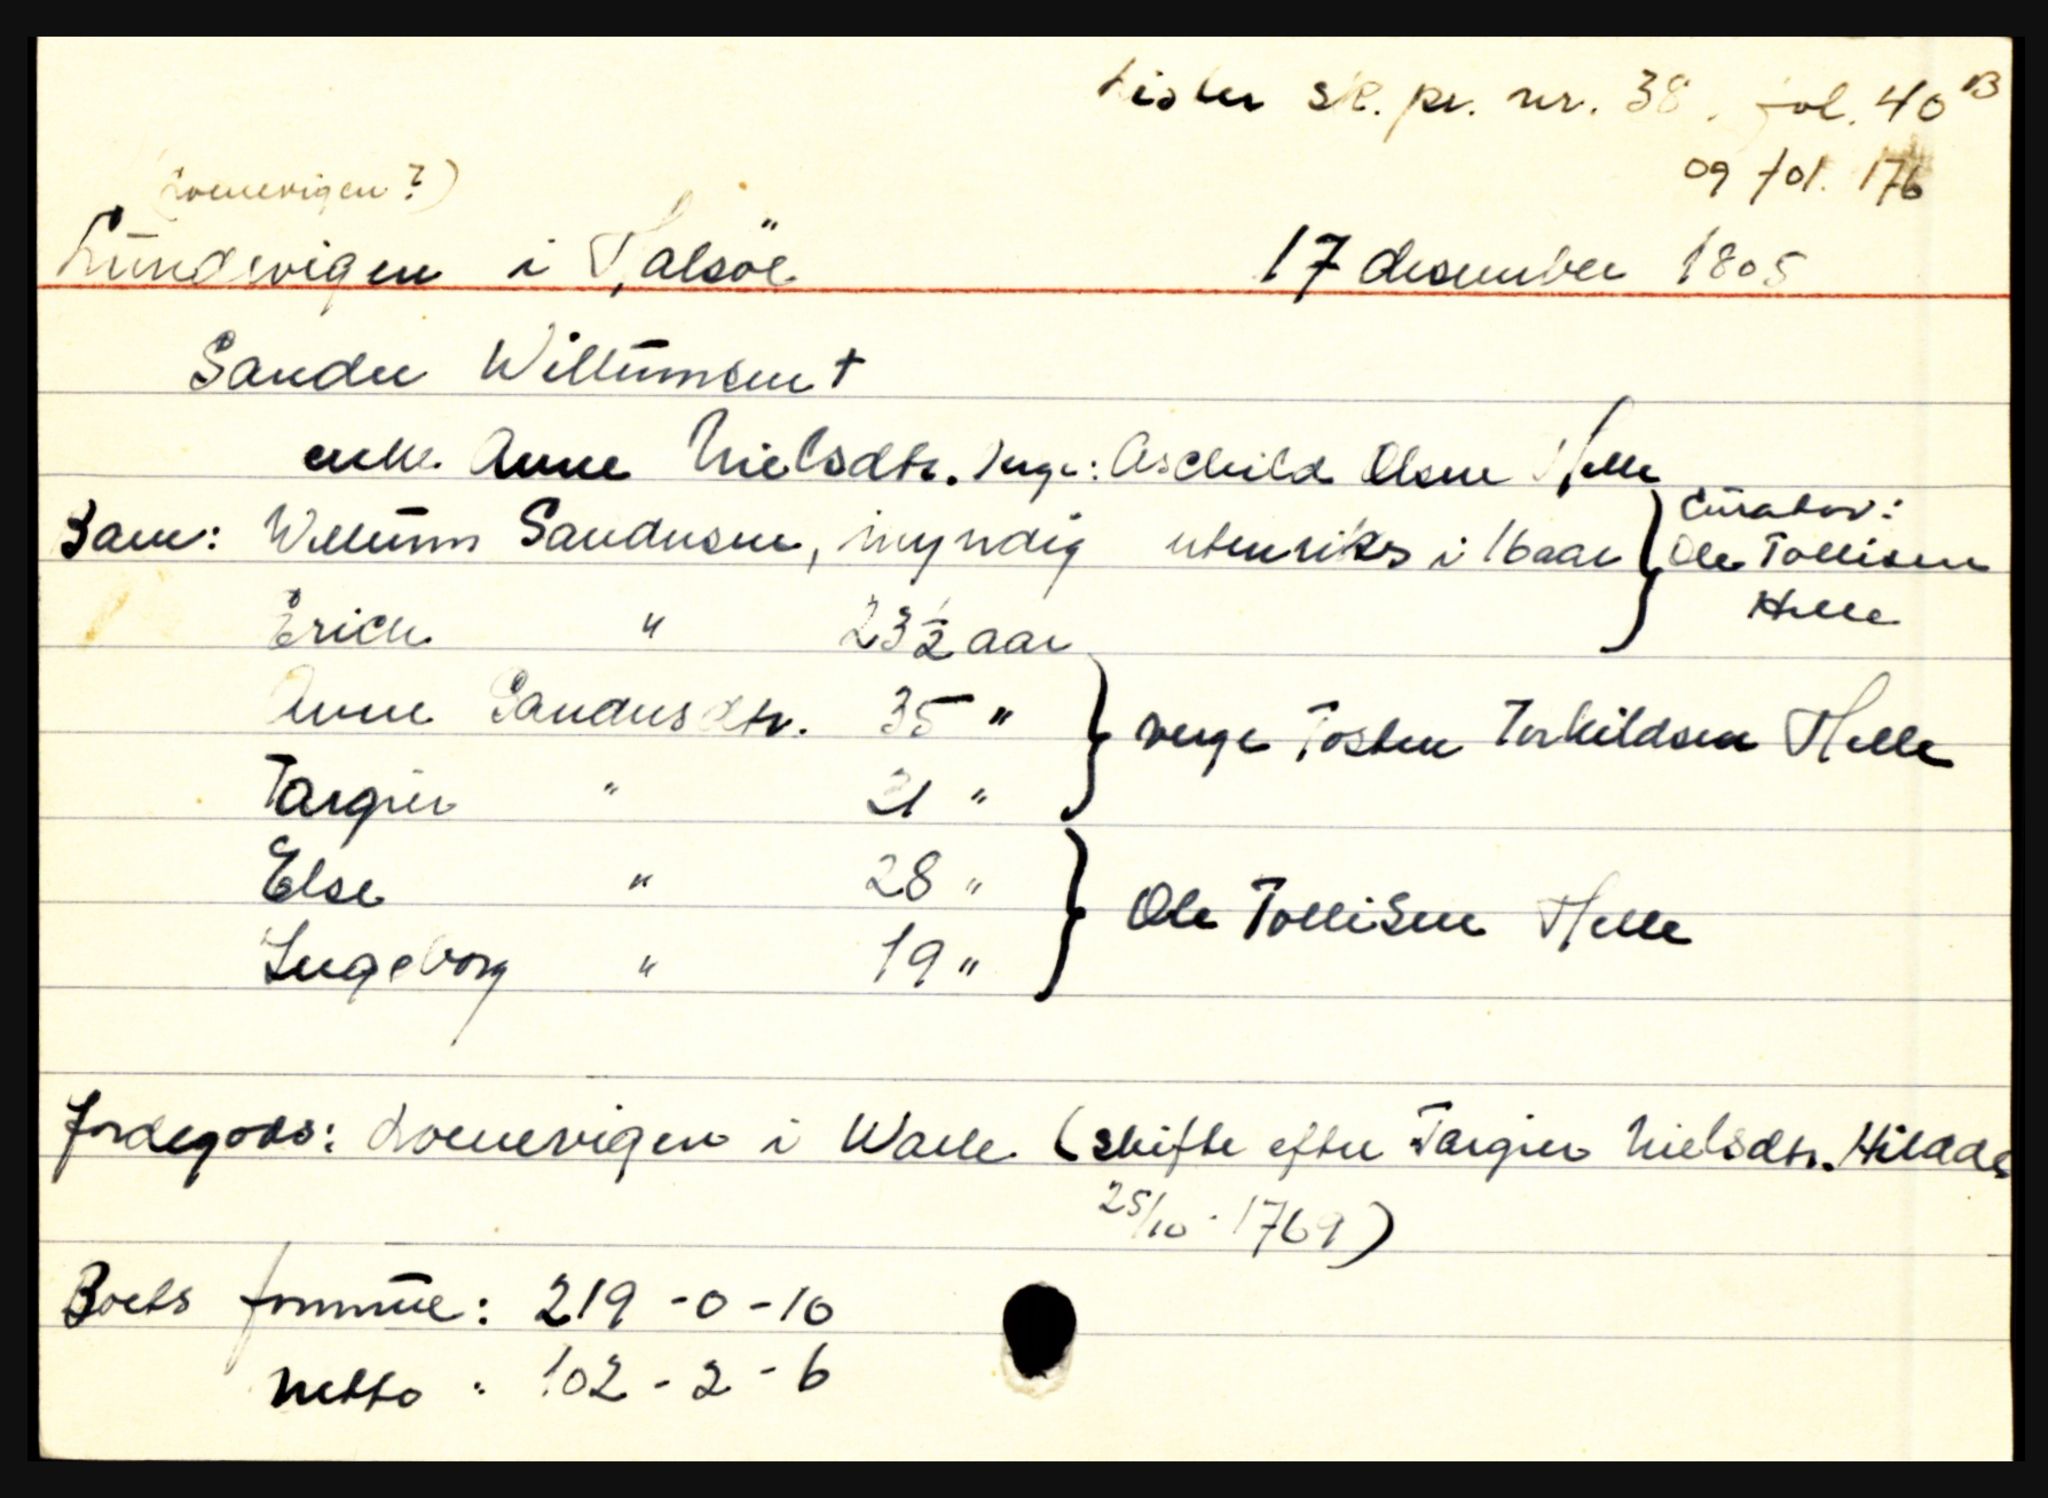 Lister sk. pr. nr. 38. fol. 40 B
og fol. 176
(Loenevigen?)
Lundevigen i Halsöe 17 desember 1805
Sander Willumsen †
enke Anne Nielsdtr. laug: Aschild Olsen Helle
Barn: Willum Sandersen, myndig utenriks i 16 aar } Curator: Ole Tollisen Helle
Erich " 23 1/2 aar
Anne Sandersdtr. 35 " } verge Tosten Torkildsen Helle
Targier " 21 "
Else " 28 " } Ole Tollisen Helle
Ingeborg " 19 "
Jordegods: Loenevigen i Walle (skifte efter Targier Nielsdtr. Hildal
25/10 - 1769)
Boets formue: 219 - 0 - 10
netto : 102 - 2 - 6